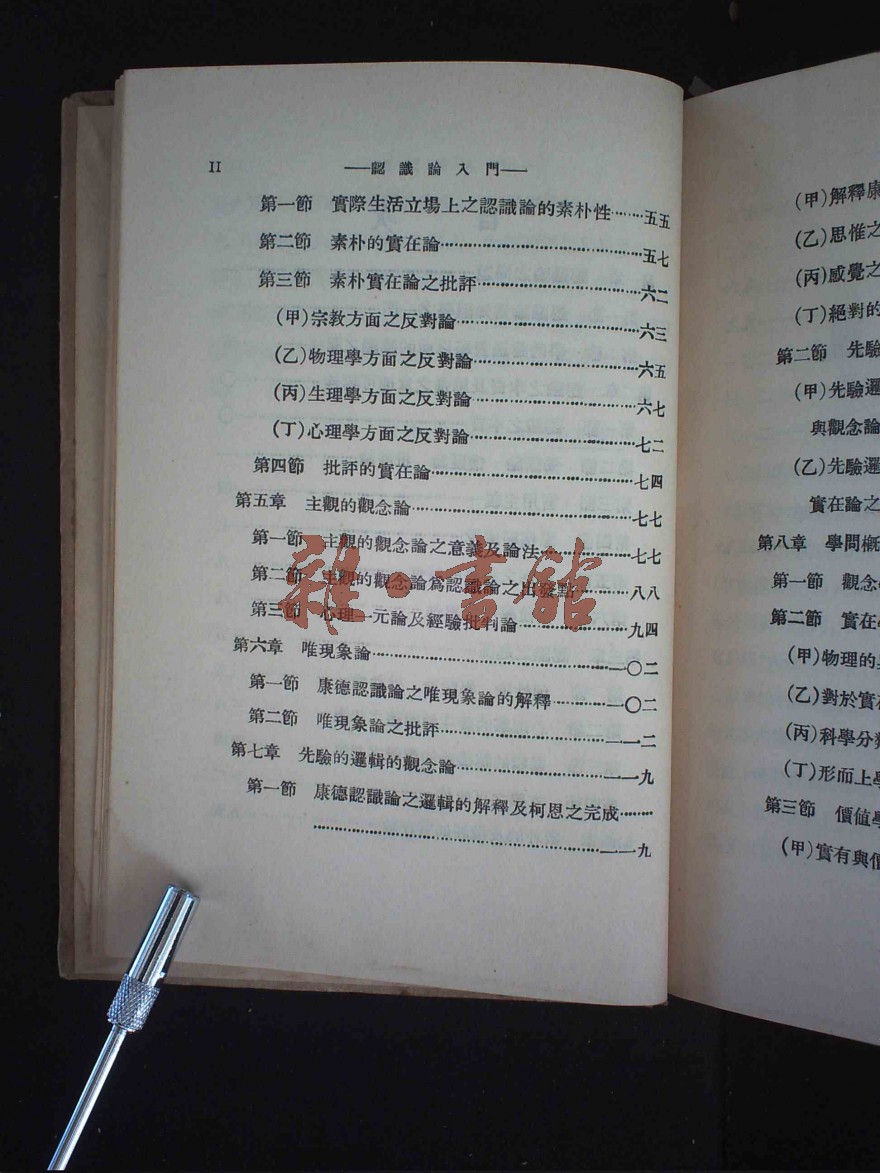 II
——認識論入門——
第一節 實際生活立場上之認識論的素朴性……五五
第二節 素朴的實在論……五七
第三節 素朴實在論之批評……六二
(甲)宗教方面之反對論……六三
(乙)物理學方面之反對論……六五
(丙)生理學方面之反對論……六七
(丁)心理學方面之反對論……七二
第四節 批評的實在論……七四
第五章 主觀的觀念論……七七
第一節 主觀的觀念論之意義及論法……七七
第二節 主觀的觀念論爲認識論之出發點……八八
第三節 心理一元論及經驗批判論……九四
第六章 唯現象論……一〇二
第一節 康德認識論之唯現象論的解釋……一〇二
第二節 唯現象論之批評……一一二
第七章 先驗的邏輯的觀念論……一一九
第一節 康德認識論之邏輯的解釋及柯恩之完成……
……一一九
雜·書館
(甲)解釋康
(乙)思惟之
(丙)感覺之
(丁)絕對的
第二節 先驗
(甲)先驗邏
與觀念論
(乙)先驗邏
實在論之
第八章 學問概
第一節 觀念
第二節 實在
(甲)物理的
(乙)對於實
(丙)科學分類
(丁)形而上學
第三節 價值學
(甲)實有與價